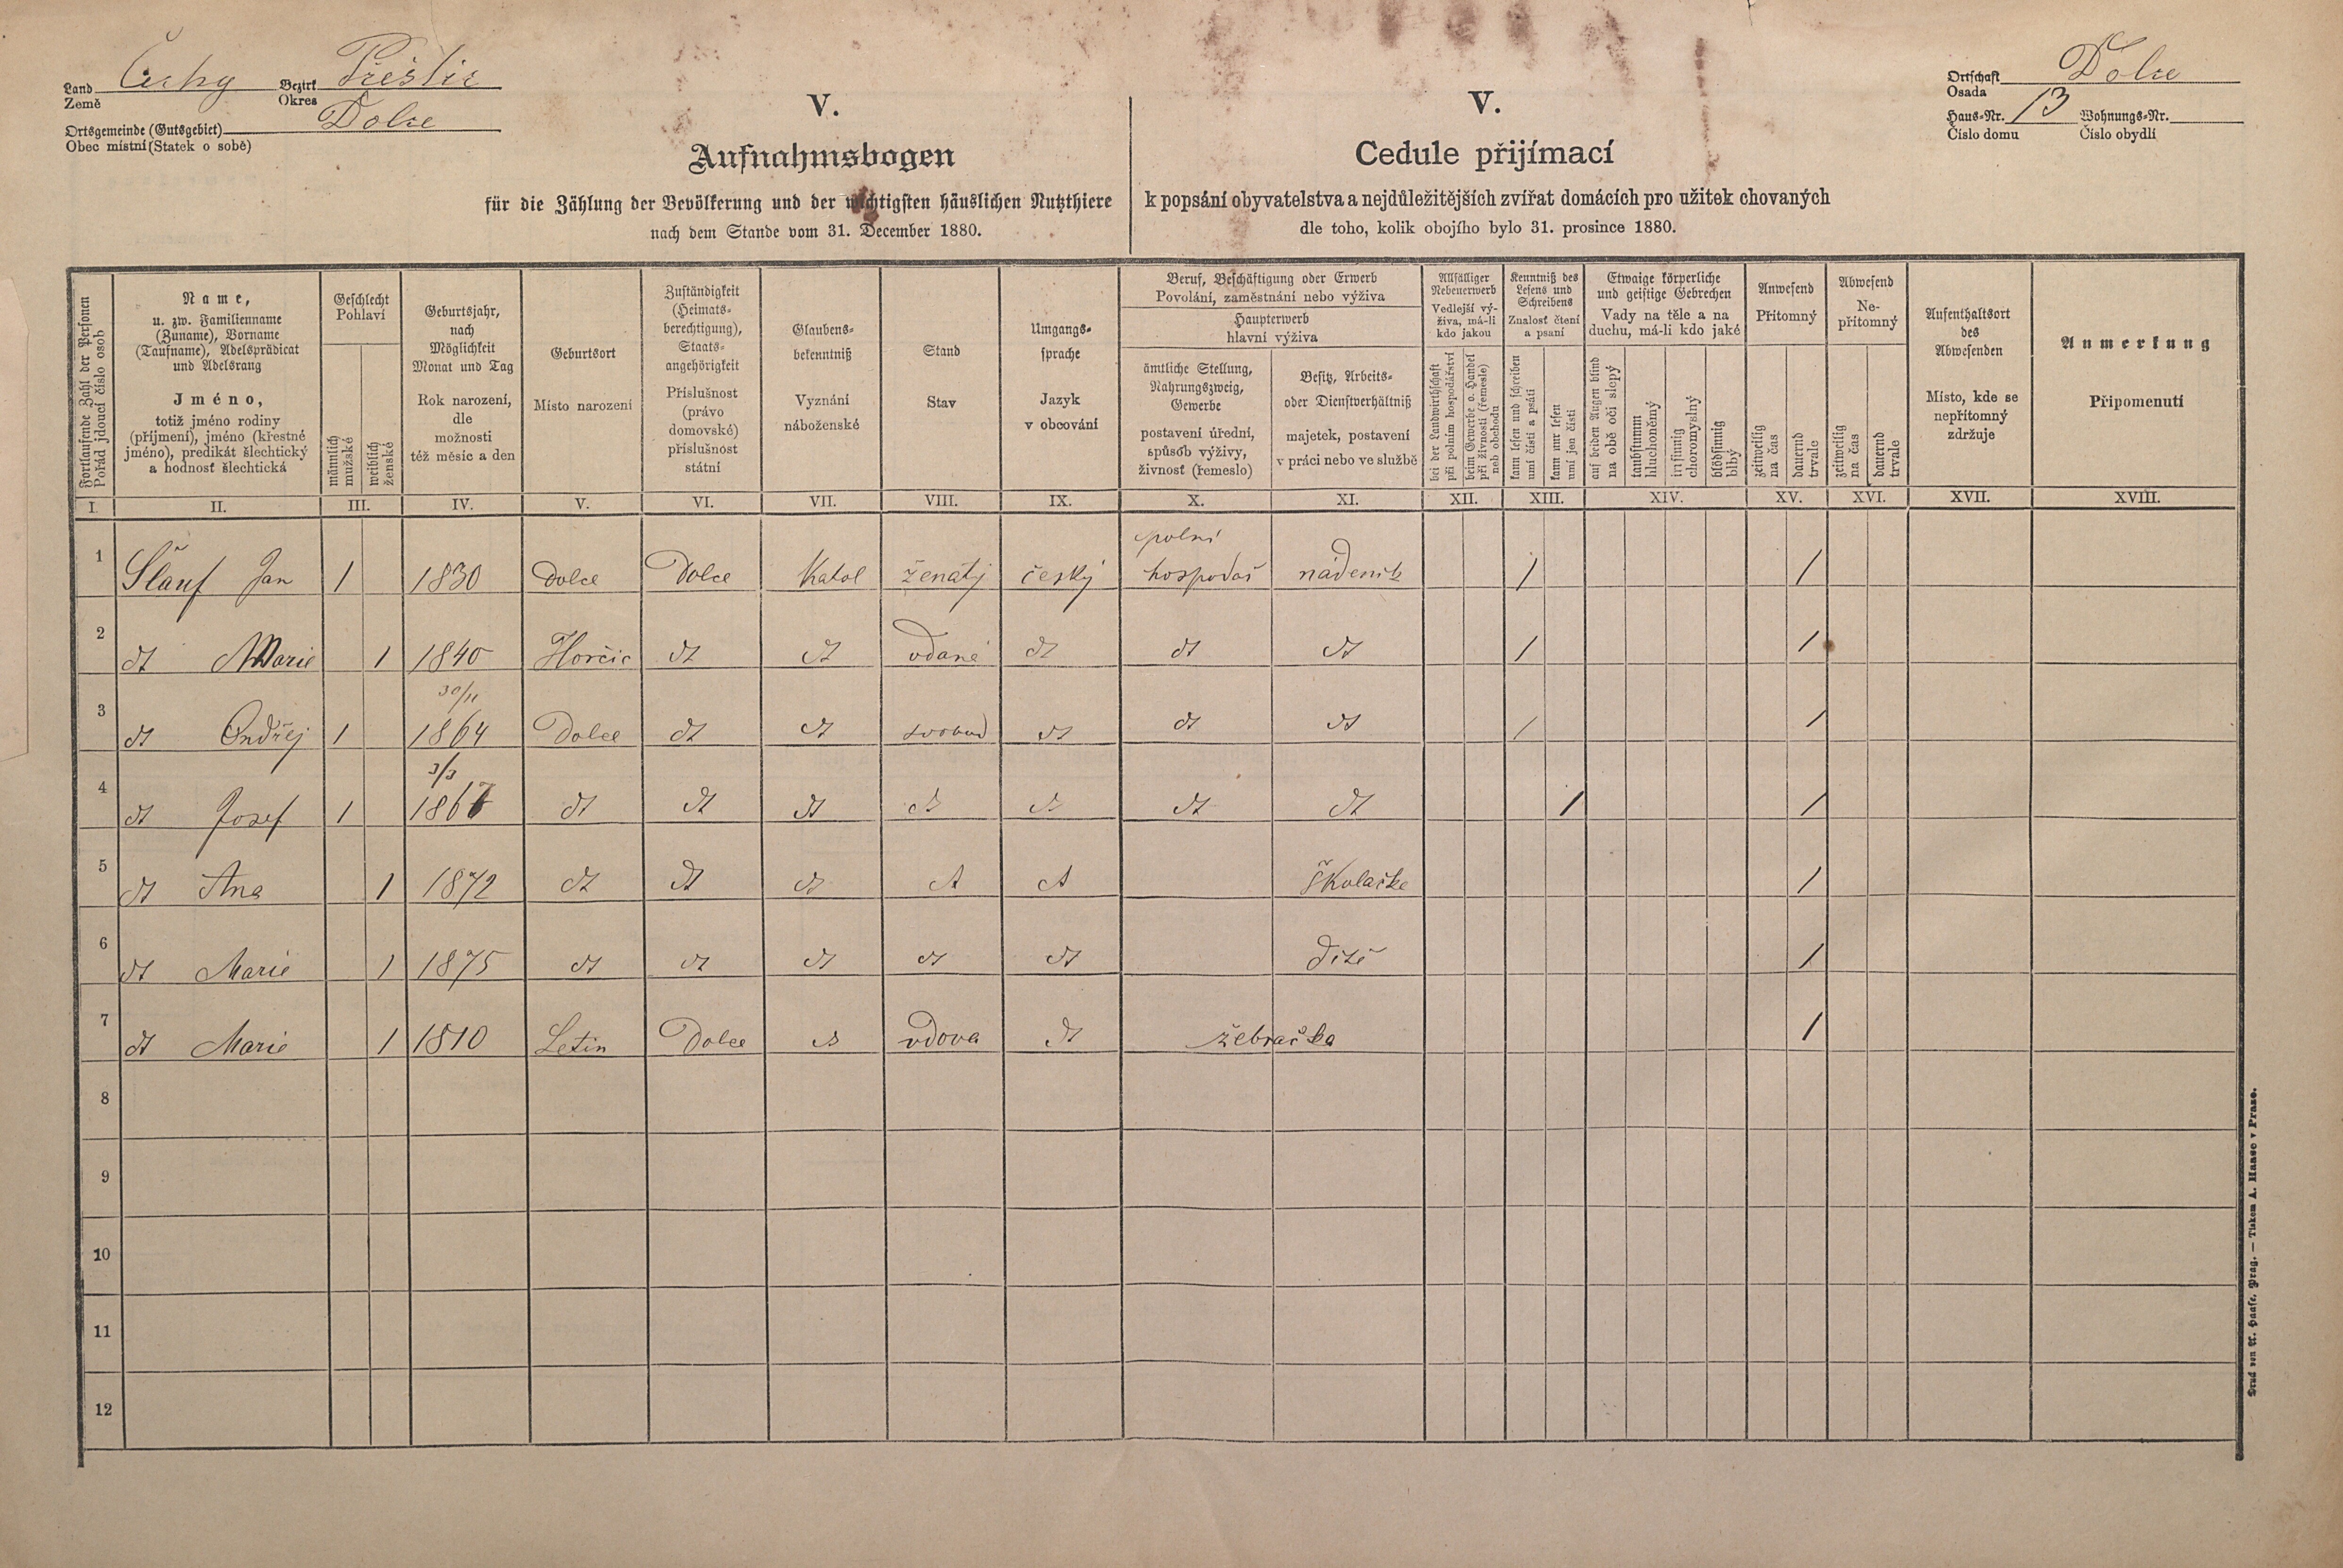 Land Čechy Bezirk Přeštic
Země Okres
Ortsgemeinde (Gutsgebiet) Dolce
Obec místní (Statek o sobě)
Ortschaft Dolce
Osada
Haus-Nr. 13 Wohnungs-Nr.
Číslo domu Číslo obydlí
V.
Aufnahmsbogen
für die Zählung der Bevölkerung und der wichtigsten häuslichen Nutzthiere
nach dem Stande vom 31. December 1880.
V.
Cedule přijímací
k popsání obyvatelstva a nejdůležitějších zvířat domácích pro užitek chovaných
dle toho, kolik obojího bylo 31. prosince 1880.
Fortlaufende Zahl der Personen
Pořád jdoucí číslo osob
Name,
u. zw. Familienname
(Zuname), Vorname
(Taufname), Adelsprädicat
und Adelsrang
Jméno,
totiž jméno rodiny
(příjmení), jméno (křestné
jméno), predikát šlechtický
a hodnosť šlechtická
Geschlecht
Pohlaví
männlich
mužské
weiblich
ženské
Geburtsjahr,
nach
Möglichkeit
Monat und Tag
Rok narození,
dle
možnosti
též měsíc a den
Geburtsort
Místo narození
Zuständigkeit
(Heimats-
berechtigung),
Staats-
angehörigkeit
Příslušnost
(právo
domovské)
příslušnost
státní
Glaubens-
bekenntniß
Vyznání
náboženské
Stand
Stav
Umgangs-
sprache
Jazyk
v obcování
Beruf, Beschäftigung oder Erwerb
Povolání, zaměstnání nebo výživa
Haupterwerb
hlavní výživa
ämtliche Stellung,
Nahrungszweig,
Gewerbe
postavení úřední,
spůsob výživy,
živnosť (řemeslo)
Besitz, Arbeits-
oder Dienstverhältniß
majetek, postavení
v práci nebo ve službě
Allfälliger
Nebenerwerb
Vedlejší vý-
živa, má-li
kdo jakou
bei der Landwirthschaft
při polním hospodářství
beim Gewerbe o. Handel
při živnosti (řemesle)
neb obchodu
Kenntniß des
Lesens und
Schreibens
Znalosť čtení
a psaní
kann lesen und schreiben
umí čísti a psáti
kann nur lesen
umí jen čísti
Etwaige körperliche
und geistige Gebrechen
Vady na těle a na
duchu, má-li kdo jaké
auf beiden Augen blind
na obě oči slepý
taubstumm
hluchoněmý
irrsinnig
choromyslný
blödsinnig
blbý
Anwesend
Přítomný
zeitweilig
na čas
dauernd
trvale
Abwesend
Ne-
přítomný
zeitweilig
na čas
dauernd
trvale
Aufenthaltsort
des
Abwesenden
Místo, kde se
nepřítomný
zdržuje
Anmerkung
Připomenutí
I. II. III. IV. V. VI. VII. VIII. IX. X. XI. XII. XIII. XIV. XV. XVI. XVII. XVIII.
polní
1 Šlauf Jan 1 1830 Dolce Dolce Katol ženatý český hospodář nádeník 1 1
2 dt Marie 1 1840 Horčic dt dt vdaná dt dt dt 1 1
30/11
3 dt Ondřej 1 1864 Dolce dt dt svobod dt dt dt 1 1
3/3
4 dt Josef 1 1867 dt dt dt dt dt dt dt 1 1
5 dt Ana 1 1872 dt dt dt dt dt školačka 1
6 dt Marie 1 1875 dt dt dt dt dt dítě 1
7 dt Marie 1 1810 Letin Dolce dt vdova dt žebračka 1
8
9
10
11
12
Druck von A. Haase, Prag. — Tiskem A. Haase v Praze.